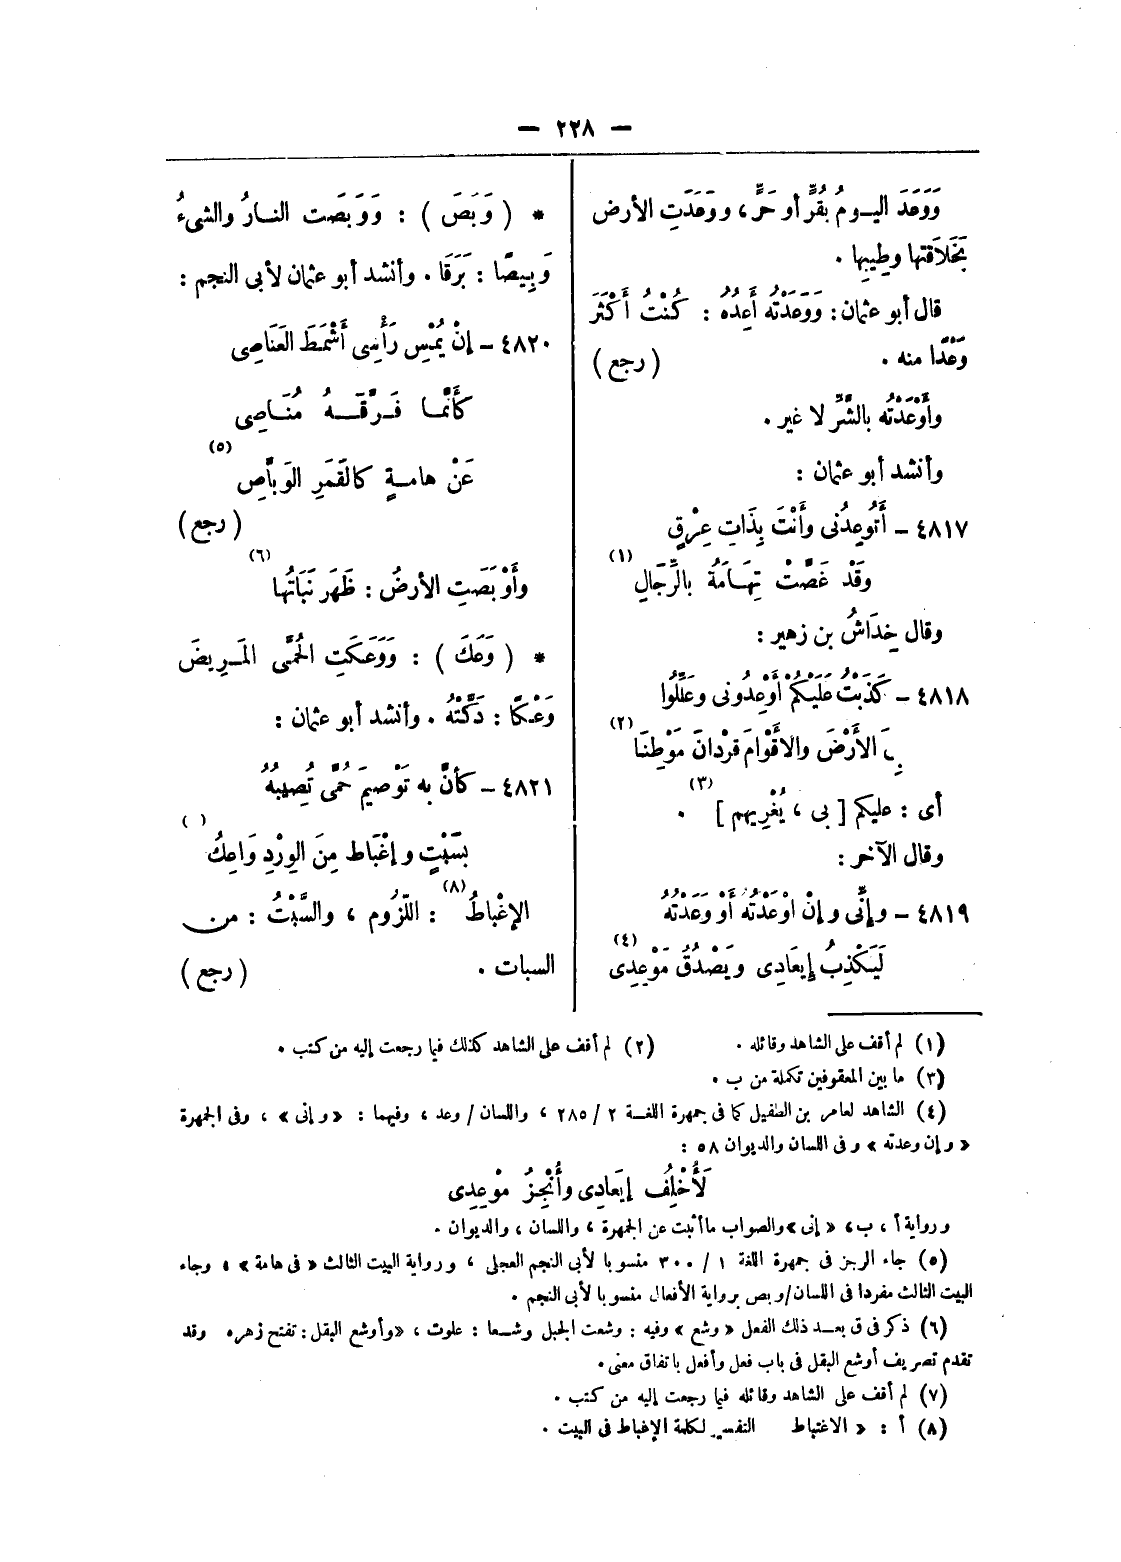 — ٢٢٨ —
وَوَعَدَ اليـومُ بُقُرٍّ أو حَرٍّ ، ووَعَدَتِ الأرض
بَخَلَاقَتها وطِيبها .
قال أبو عثمان : وَوَعَدْتُه أَعِدُهُ : كُنْتُ أَكْثَرَ
وَعْدًا منه . ( رجع )
وأَوْعَدْتُه بالشَّرِّ لا غير .
وأنشد أبو عثمان :
٤٨١٧ – أَتُوعِدُنى وأَنْتَ بِذَاتِ عِرْقٍ
وَقَدْ غَصَّتْ تِهَـامَةُ بالرِّجَالِ (١)
وقال خِدَاشُ بن زهير :
٤٨١٨ – كَذَبْتُ عَلَيْكُمْ أَوْعِدُونى وعَلِّلُوا
بِىَ الأَرْضَ والأَقْوَامَ قِرْدَانَ مَوْظِنَا (٢)
أى : عليكم [ بى ، يُغْرِيهم ] (٣) .
وقال الآخر :
٤٨١٩ – وإنِّى وإنْ اوْعَدْتُه أَوْ وعَدْتُه
لَيَكْذِبُ إيعَادِى ويَصْدُقُ مَوْعِدِى (٤)
* ( وَبَصَ ) : وَوَبَصَت النـارُ والشىءُ
وَبِيصًا : بَرَقَا . وأنشد أبو عثمان لأبى النجم :
٤٨٢٠ – إنْ يُمْسِ رَأْسِى أَشْمَطَ العَنَاصِى
كأَنَّمـا فَـرَّقَـــهُ مُنَـاصِى
عَنْ هامـةٍ كالقَمَرِ الوَبَّاصِ (٥)
( رجع )
وأَوْبَصَتِ الأرضُ : ظَهَرَ نَبَاتُها (٦)
* ( وَعَكَ ) : وَوَعَكَتِ الحُمَّى المَـرِيضَ
وَعْـكًا : دَكَّتْهُ . وأنشد أبو عثمان :
٤٨٢١ – كأنَّ به تَوْصِيمَ حُمَّى تُصِيبُهُ
بسَبْتٍ وإغْبَاط مِنَ الوِرْدِ وَاعِكُ ( )
الإغْباطُ (٨) : اللّزُوم ، والسَّبْتُ : من
السبات . ( رجع )
(١) لم أقف على الشاهد وقائله . (٢) لم أقف على الشاهد كذلك فيما رجعت إليه من كتب .
(٣) ما بين المعقوفين تكملة من ب .
(٤) الشاهد لعامر بن الطفيل كما فى جمهرة اللغـة ٢ / ٢٨٥ ، واللسان / وعد ، وفيهما : « وإنى » ، وفى الجمهرة
« وإن وعدته » وفى اللسان والديوان ٥٨ :
لَأُخْلِفُ إيعَادِى وأُنْجِزُ مَوْعِدِى
ورواية أ ، ب ، « إنى » والصواب ما أثبت عن الجمهرة ، واللسان ، والديوان .
(٥) جاء الرجز فى جمهرة اللغة ١ / ٣٠٠ منسوبا لأبى النجم العجلى ، ورواية البيت الثالث « فى هامة » ، وجاء
البيت الثالث مفردا فى اللسان/وبص برواية الأفعال منسوبا لأبى النجم .
(٦) ذكر فى ق بعـد ذلك الفعل « وشع » وفيه : وشعت الجبل وشـعا : علوت ، «وأوشع البقل : تفتح زهره وقد
تقدم تصريف أوشع البقل فى باب فعل وأفعل باتفاق معنى .
(٧) لم أقف على الشاهد وقائله فيما رجعت إليه من كتب .
(٨) أ : « الاغتباط التفسير لكلمة الإغباط فى البيت .